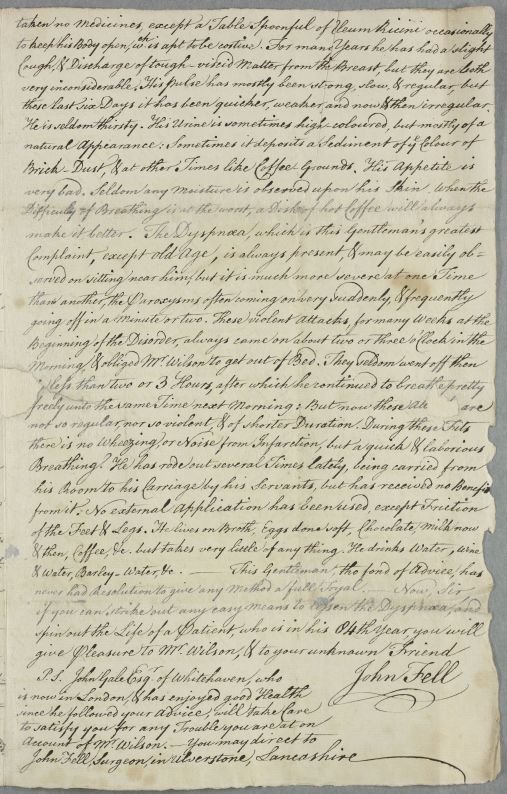 taken no Medicines, except a Table Spoonful of Oleum Ricini occasionally
to keep his Body open, wch is apt to be costive. For many Years he has had a slight
Cough, & Discharge of tough-viscid Matter from the Breast, but they are both
very inconsiderable. His Pulse has mostly been strong, slow, & regular, but
these last Six Days it has been quicker, weaker, and now & then irregular.
He is seldom thirsty. His Urine is sometimes high-coloured, but mostly of a
natural Appearance: sometimes it deposits a Sediment of ye Colour of
Brick-Dust, & at other Times like Coffee Grounds. His Appetite is
very bad. Seldom any Moisture is observed upon his Skin. When the
Difficulty of Breathing is at the worst, a Dish of hot Coffee will always
make it better. The Dyspnœa, which is this Gentleman's greatest
Complaint, except old Age, is always present, & may be easily ob-
served on sitting near him, but it is much more severe at one Time
than another, the Paroxysms often coming on very suddenly, & frequently
going off in a Minute or two. These violent Attacks, for many Weeks at the
Beginning of the Disorder, always came on about two or three o'Clock in the
Morning, & obliged Mr. Wilson to get out of Bed. They seldom went off then
less than two or 3 Hours, after which he continued to breathe pretty
freely unto the same Time next Morning: But now those are
not so regular, nor so violent, & of shorter Duration. During these Fits
there is no Wheezing, or Noise from Infarction, but a quick & laborious
Breathing. He has rode out several Times lately, being carried from
his Room to his Carriage by his Servants, but has received no Benefit
from it. No external Application has been used, except Friction
of the Feet & Legs. He lives on Broth, Eggs done soft, Chocolate, Milk now
& then, Coffee, &c. but takes very little of any thing. He drinks Water, Wine
& Water, Barley-Water, &c. — This Gentleman, tho' fond of Advice, has
never had Resolution to give any Method a full Tryal. — Now, Sir,
if you can strike out any easy Means to lessen the Dyspnœa, and
spin out the Life of a Patient, who is in his 84th Year, you will
give Pleasure to Mr. Wilson, & to your unknown Friend
John Fell
P.S. John Gale Esqr. of Whitehaven, who
is now in London, & has enjoyed good Health
since he followed your Advice, will take Care
to satisfy you for any Trouble you are at on
Account of Mr. Wilson. — You may direct to
John Fell, Surgeon, in Ulverstone, Lancashire